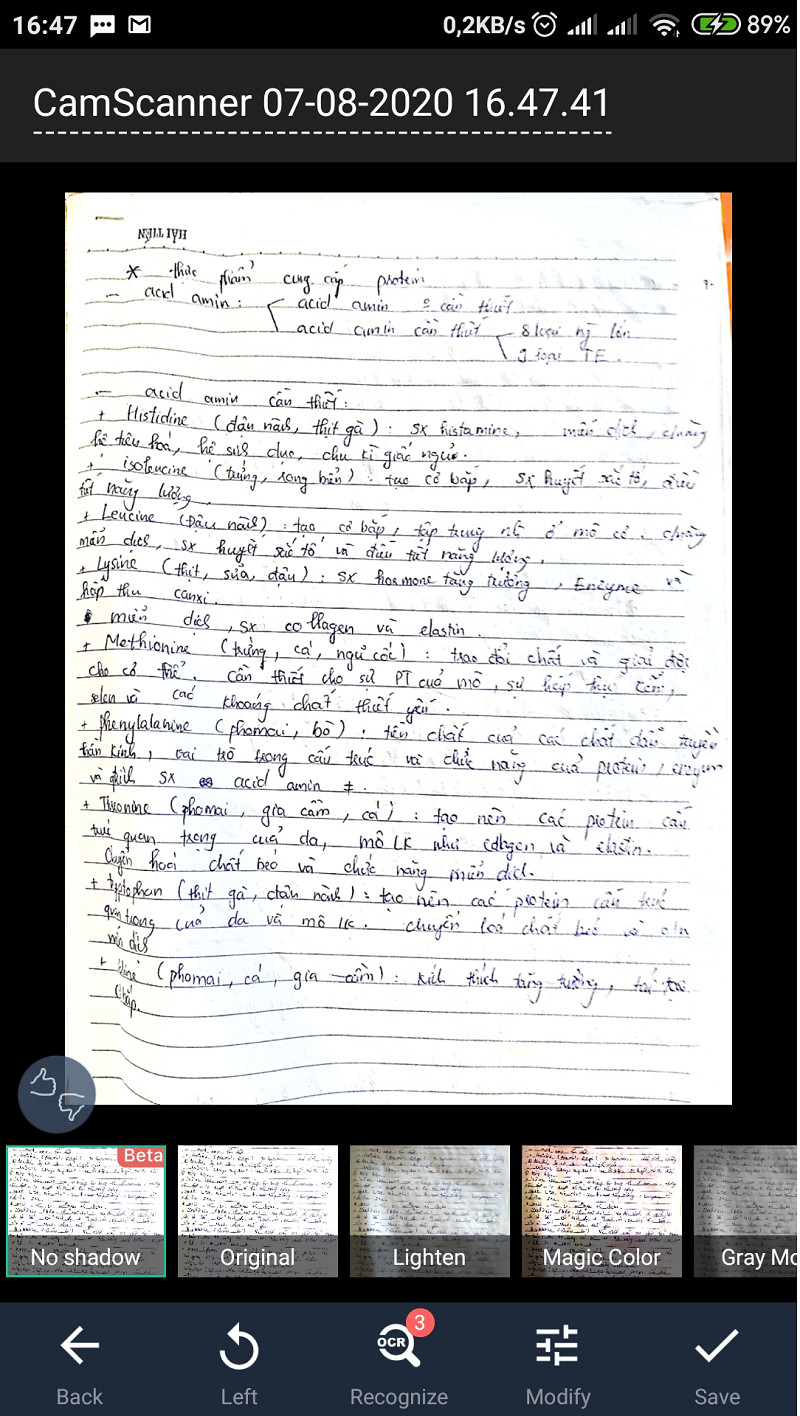 16:47 0,2KB/s 89%
CamScanner 07-08-2020 16.47.41
HẢI TIẾN
* thực phẩm cung cấp protein
- acid amin : acid amin cần thiết
acid amin cần thiết 8 loại ng lớn
9 loại TE.
- acid amin cần thiết :
+ Histidine (đậu nành, thịt gà) : sx histamine, miễn dịch, chường
hệ tiêu hoá, hệ sinh dục, chu kì giấc ngủ.
+ isoleucine (trứng, rong biển) : tạo cơ bắp, sx huyết sắc tố, điều
tiết năng lượng.
+ Leucine (Đậu nành) : tạo cơ bắp, tập trung nh ở mô cơ, chường
miễn dịch, sx huyết sắc tố và điều tiết năng lượng.
+ Lysine (thịt, sữa, đậu) : sx hormone tăng trưởng, Enzyme và
hấp thu canxi.
miễn dịch, sx collagen và elastin.
+ Methionine (trứng, cá, ngũ cốc) : trao đổi chất và giải độc
cho cơ thể. cần thiết cho sự PT của mô, sự hấp thu kẽm,
selen và các khoáng chất thiết yếu.
+ Phenylalanine (phomai, bò). tiền chất của các chất dẫn truyền
thần kinh, vai trò trong cấu trúc và chức năng của protein, enzym
và sx acid amin ≠.
+ Threonine (phomai, gia cầm, cá) : tạo nên các protein cấu
trúc quan trọng của da, mô LK như collagen và elasin.
Chuyển hoá chất béo và chức năng miễn dịch.
+ tryptophan (thịt gà, đậu nành) : tạo nên các protein cấu trúc
quan trọng của da và mô lk. chuyển hoá chất béo và c/n
miễn dịch
+ (phomai, cá, gia cầm) : kích thích tăng trưởng, tái tạo
Beta
No shadow Original Lighten Magic Color Gray Mo
OCR 3
Back Left Recognize Modify Save